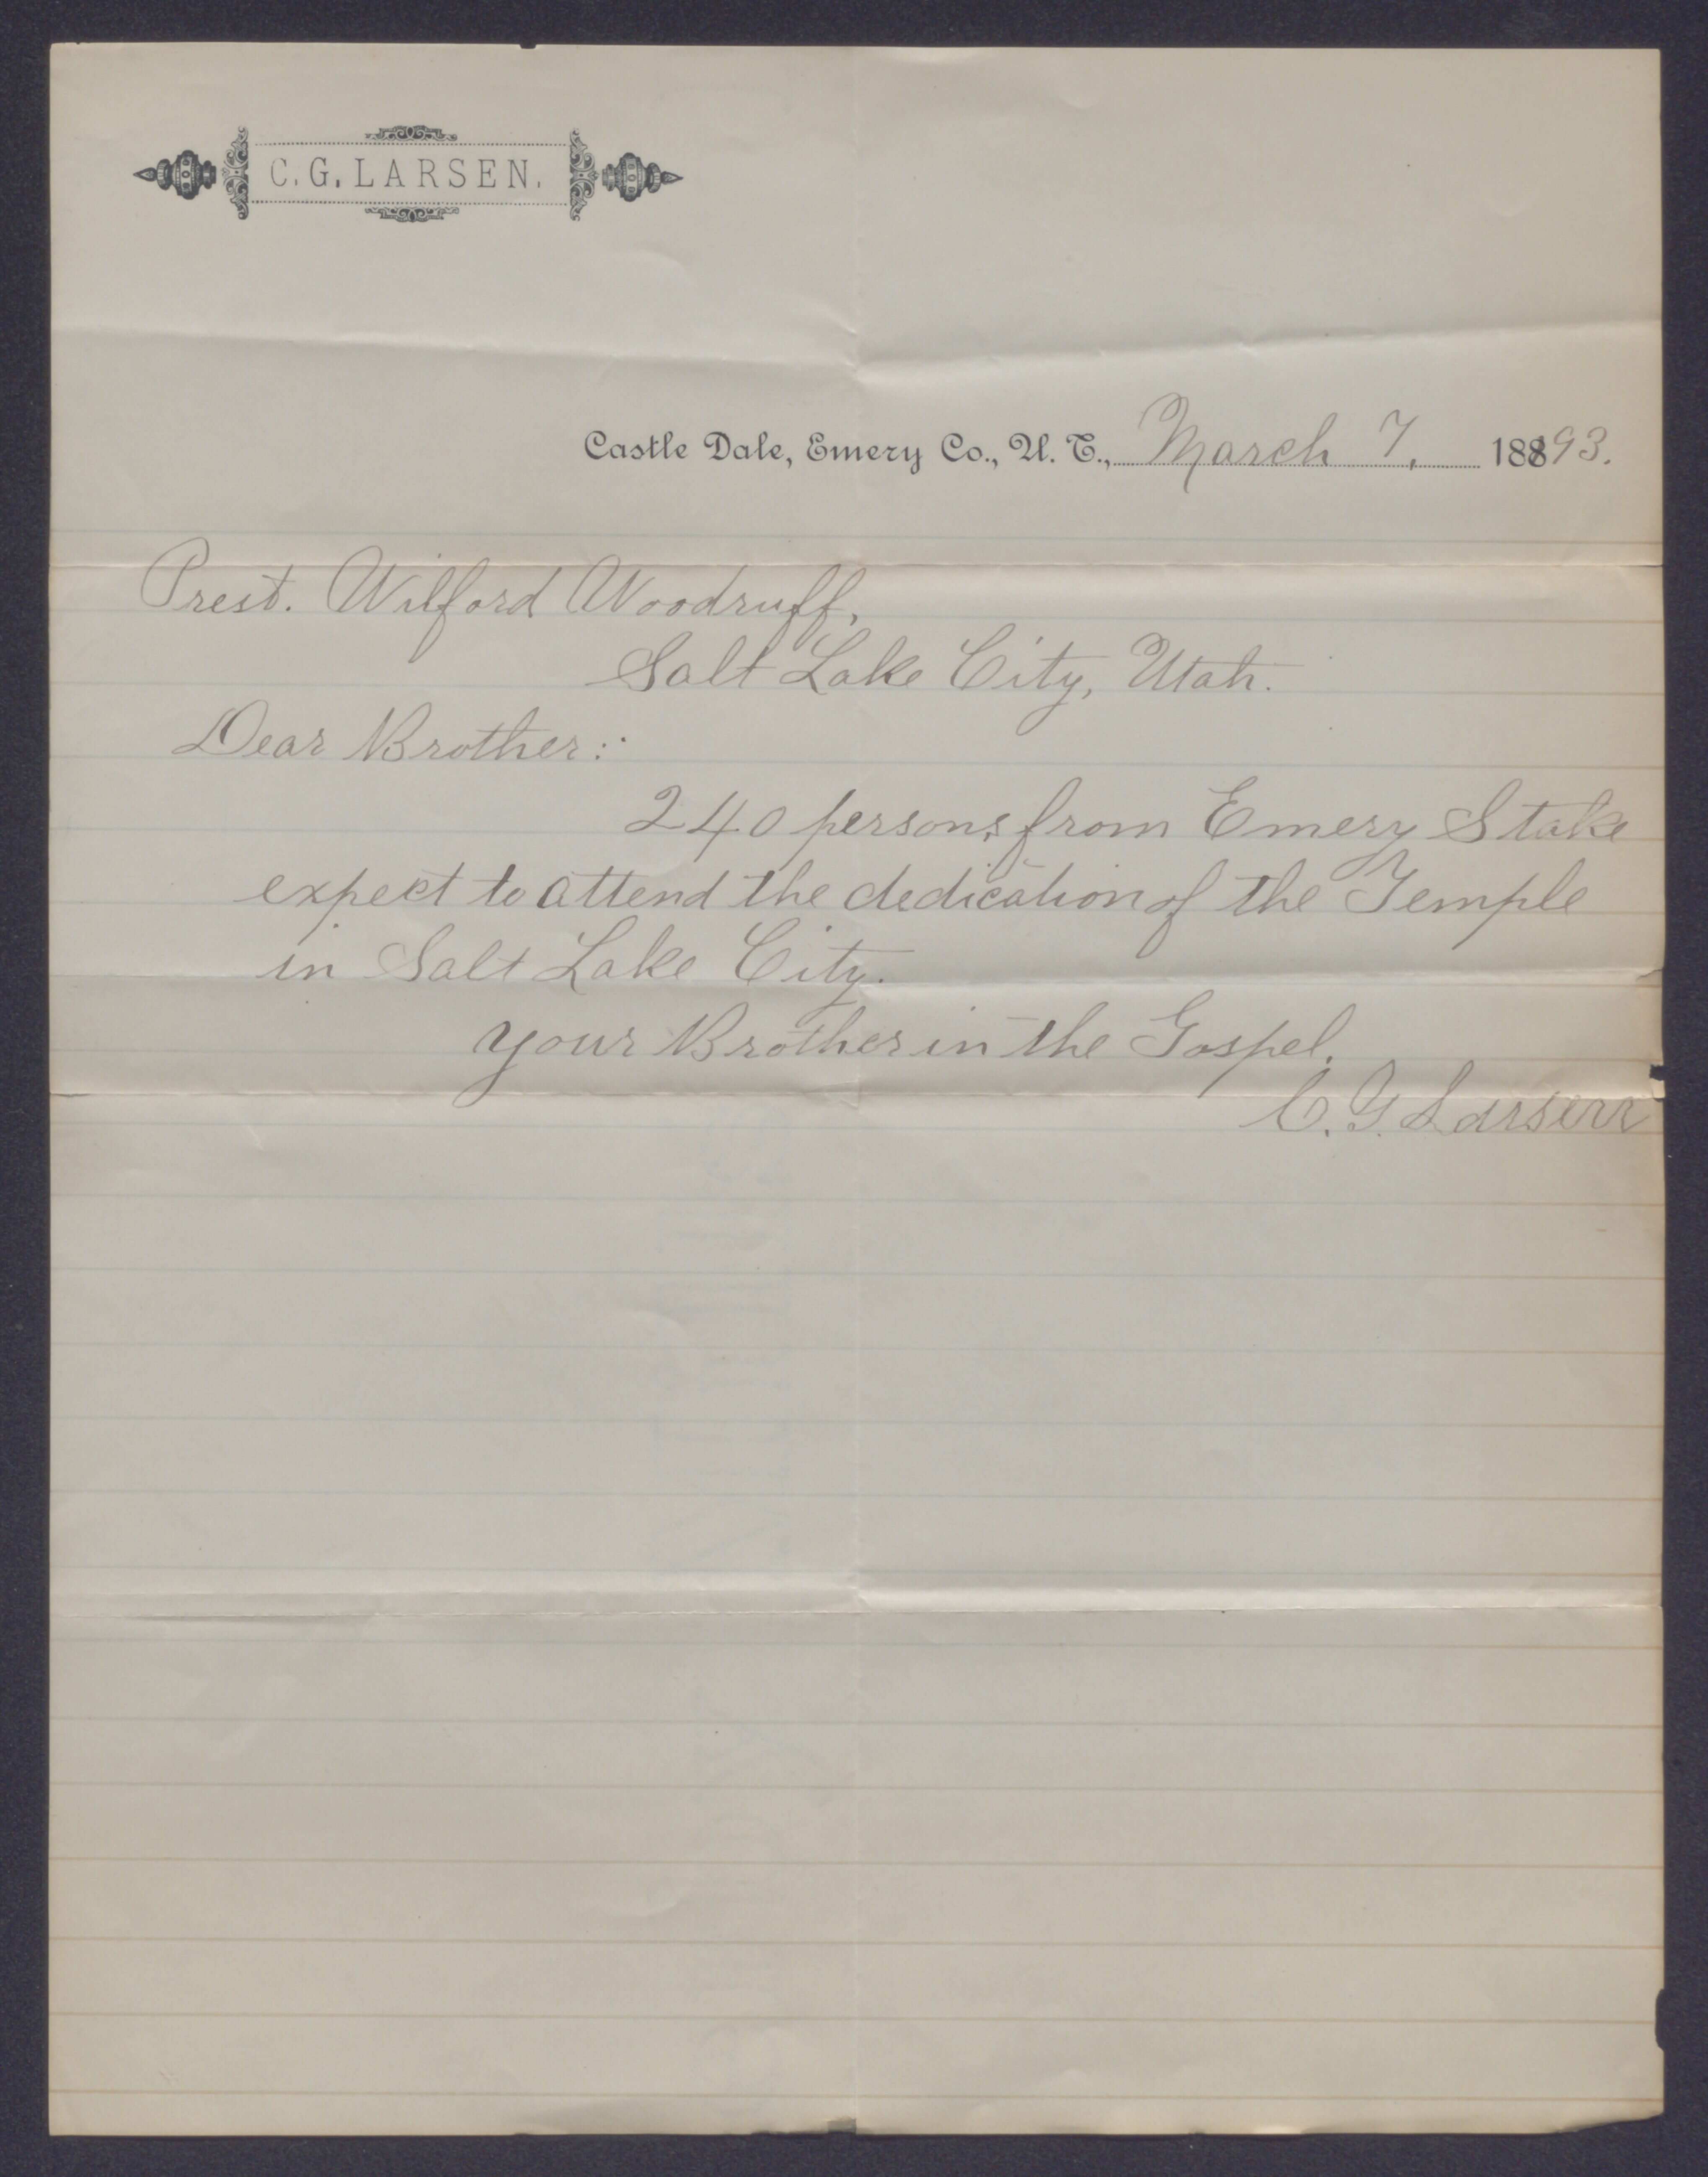 C. G. LARSEN.
Castle Dale, Emery Co., U. T., March 7, 18893.
Prest. Wilford Woodruff,
Salt Lake City, Utah.
Dear Brother:
240 persons from Emery Stake
expect to attend the dedication of the Temple
in Salt Lake City.
Your Brother in the Gospel,
C. G. Larsen